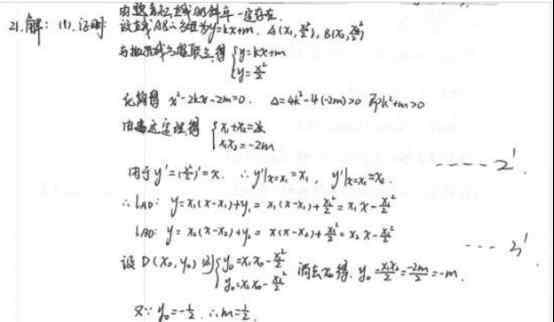 由题意知直线AB的斜率一定存在.
21.解: (1).证明: 设直线AB的方程为y=kx+m. A(x₁,x₁²/2), B(x₂,x₂²/2)
与抛物线方程联立得 {y=kx+m
y=x²/2
化简得 x²-2kx-2m=0. Δ=4k²-4(-2m)>0 即k²+m>0
由韦达定理得 {x₁+x₂=2k
x₁x₂=-2m
由于y'=(x²/2)'=x. ∴y'|x=x₁=x₁, y'|x=x₂=x₂. ----- 2'
∴lAD: y=x₁(x-x₁)+y₁=x₁(x-x₁)+x₁²/2=x₁x-x₁²/2
lBD: y=x₂(x-x₂)+y₂=x₂(x-x₂)+x₂²/2=x₂x-x₂²/2
设D(x₀,y₀) 则{y₀=x₁x₀-x₁²/2
y₀=x₂x₀-x₂²/2 消去x₀得. y₀=x₁x₂/2=-2m/2=-m.
又∵y₀=-1/2 ∴m=1/2.